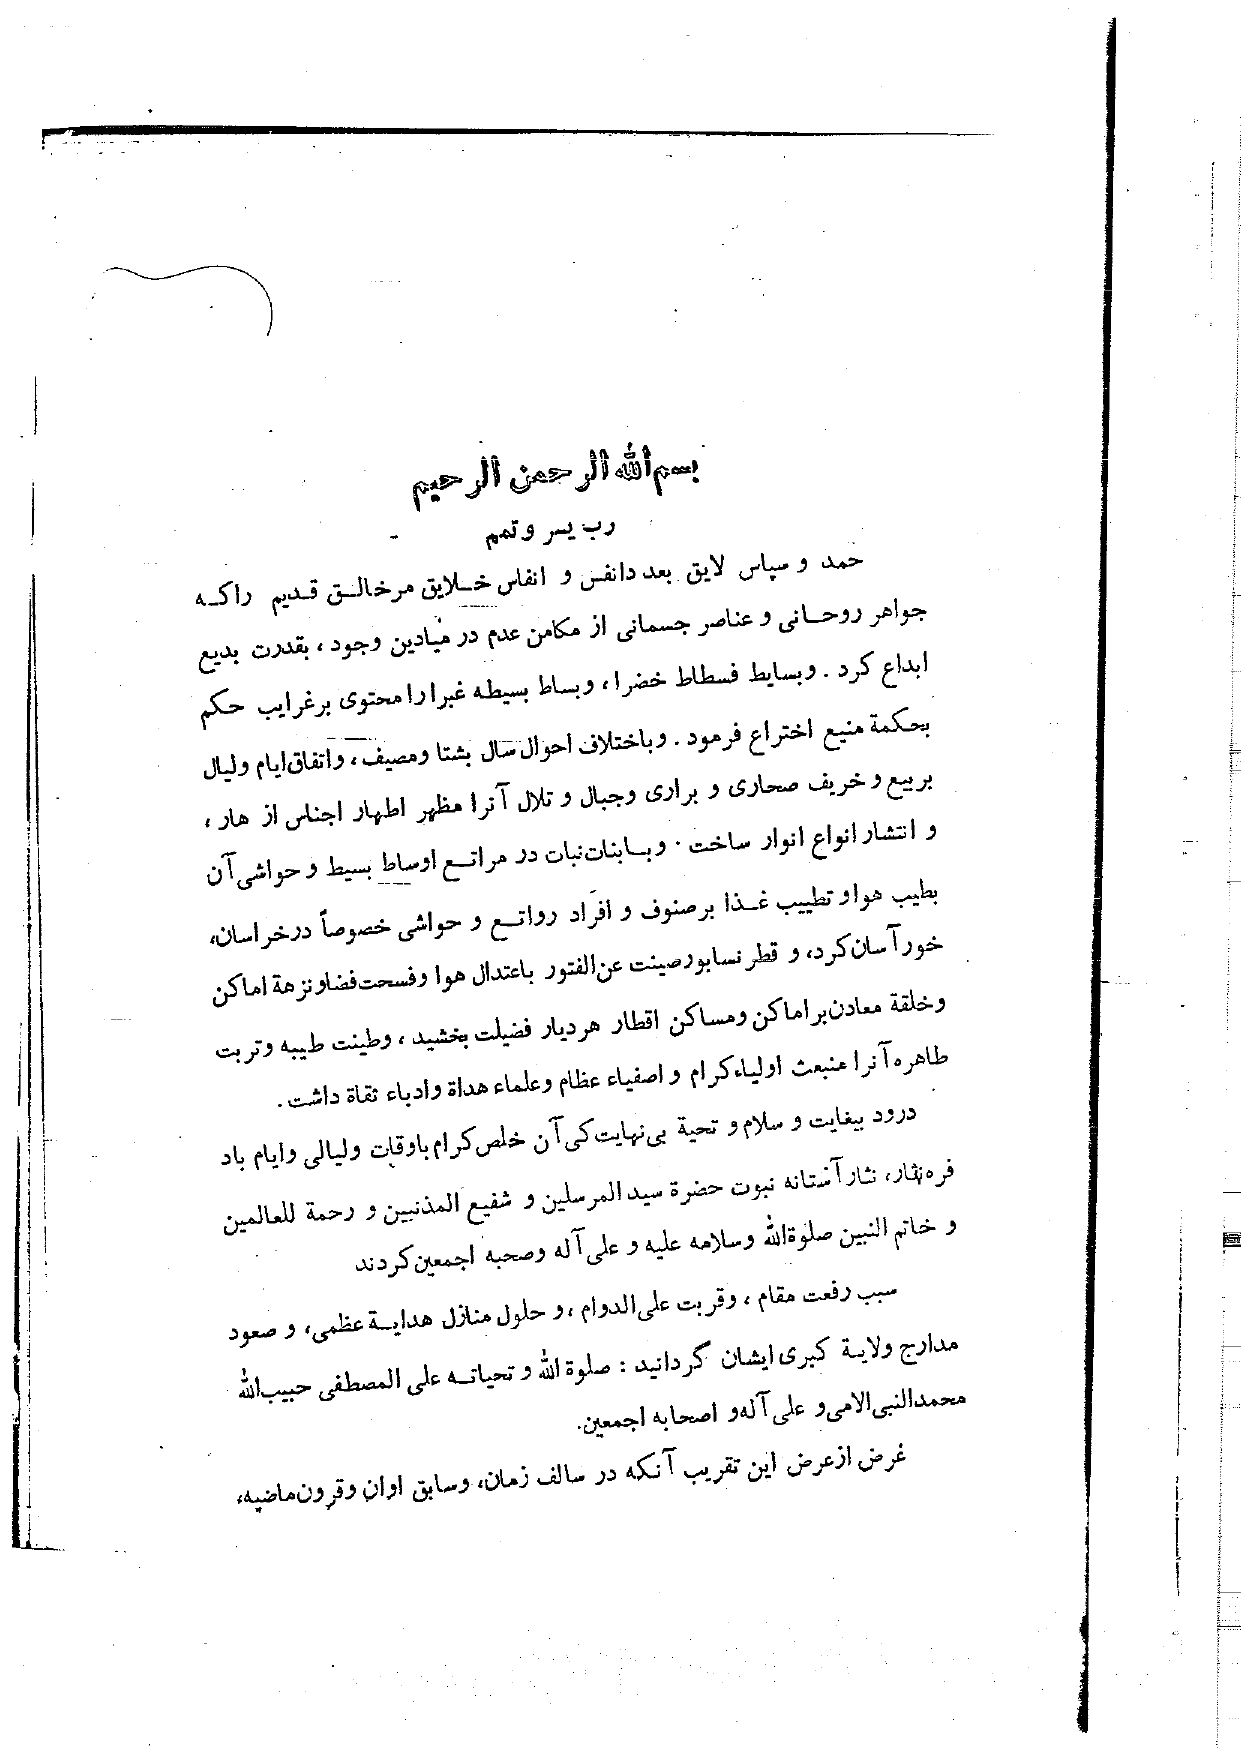 بسم الله الرحمن الرحیم
رب یسر و تمم
حمد و سپاس لایق بعد دانفس و انفاس خـلایق مرخالـق قـدیم راکـه
جواهر روحـانی و عناصر جسمانی از مکامن عدم در میادین وجود ، بقدرت بدیع
ابداع کرد . وبسایط فسطاط خضرا، وبساط بسیطه غبرا را محتوی برغرایب حکم
بحکمة منیع اختراع فرمود . وباختلاف احوال سال بشتا ومصیف، واتفاق ایام ولیال
بربیع وخریف صحاری و براری وجبال و تلال آنرا مظهر اظهار اجناس از هار ،
و انتشار انواع انوار ساخت . وبـابنات نبات در مراتـع اوساط بسیط و حواشی آن
بطیب هوا و تطییب غـذا برصنوف و افراد رواتـع و حواشی خصوصاً درخراسان،
خورآسان کرد، و قطر نسابور صینت عن الفتور باعتدال هوا وفسحت فضا و نزهة اماکن
وخلقة معادن براماکن ومساکن اقطار هردیار فضیلت بخشید ، وطینت طیبه وتربت
طاهره آنرا منبعث اولیاء کرام و اصفیاء عظام وعلماء هداة وادباء ثقاة داشت .
درود بیغایت و سلام و تحیة بی‌نهایت کی آن خلص کرام باوقات ولیالی وایام باد
فره نثار، نثار آشتانه نبوت حضرة سید المرسلین و شفیع المذنبین و رحمة للعالمین
و خاتم النبین صلوةالله وسلامه علیه و علی آله وصحبه اجمعین کردند
سبب رفعت مقام ، وقربت علی الدوام ،و حلول منازل هدایـة عظمی، و صعود
مدارج ولایـة کبری ایشان گردانید : صلوة الله و تحیاتـه علی المصطفی حبیب الله
محمد النبی الامی و علی آله و اصحابه اجمعین.
غرض ازعرض این تقریب آنکه در سالف زمان، وسابق اوان وقرون ماضیه،